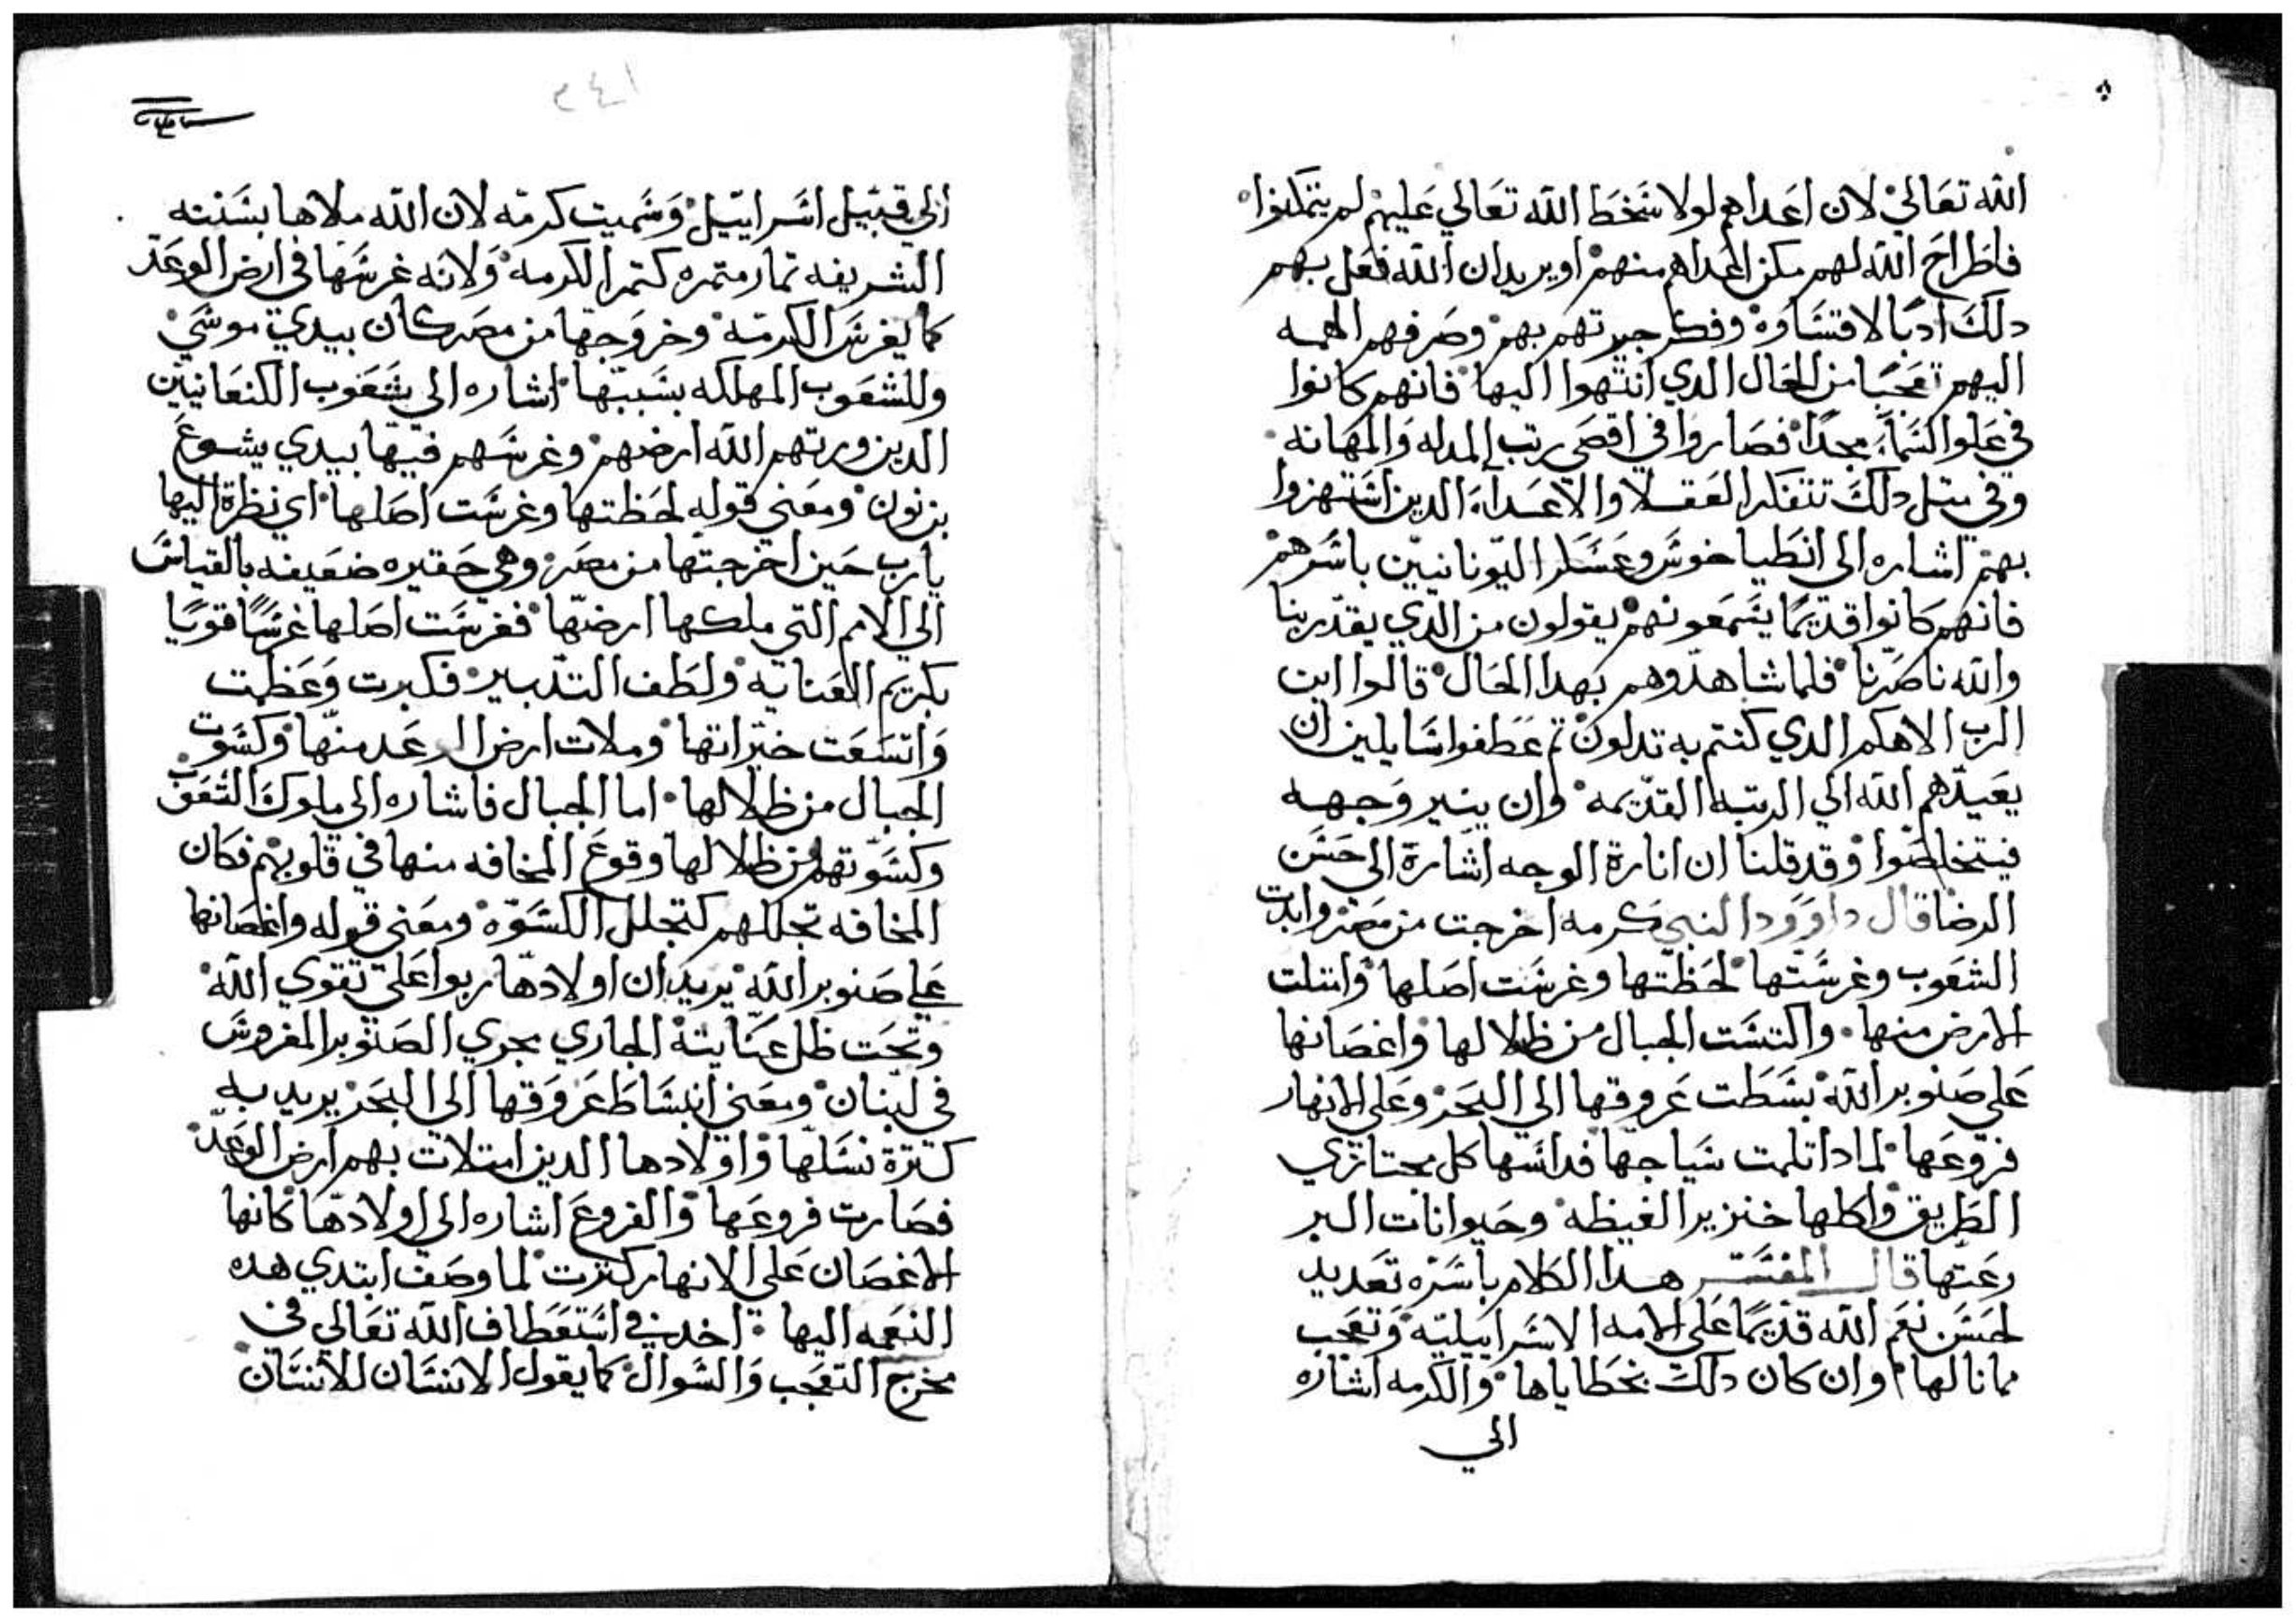 الله تعالي لان اعداهم لولا سخط الله تعالي عليهم لم يتمكنوا
فاطراح الله لهم مكن اعداهم منهم او يريد ان الله فعل بهم
دلك ادبا لاقتساره وفكر جيرتهم بهم وصرفهم الهمه
اليهم تعجبا من الحال الدي انتهوا اليها فانهم كانوا
في علو السماء مجدا فصاروا في اقصي رتب المدله والمهانه
وفي متل دلك تتفكر العقلا والاعداء الدين استهزوا
بهم اشاره الي انطياخوس وعسكر اليونانيين باسرهم
فانهم كانوا قديما يسمعونهم يقولون من الدي يقدر بنا
والله ناصرنا فلما شاهدوهم بهدا الحال قالوا اين
الرب الاهكم الدي كنتم به تدلون تم عطفوا سايلين ان
يعيدهم الله الي الرتبه القديمه وان ينير وجهه
فيتخلصوا وقد قلنا ان انارة الوجه اشارة الي حسن
الرضا قال داوود النبي كرمه اخرجت من مصر وابدت
الشعوب وغرستها لحظتها وغرست اصلها وامتلت
الارض منها واكتست الجبال من ظلالها واغصانها
علي صنوبر الله بسطت عروقها الي البحر وعلي الانهار
فروعها لمادا تلمت سياجها فداسها كل مجتاز في
الطريق واكلها خنزير الغيظه وحيوانات البر
رعتها قال المفسر هدا الكلام باسره تعديد
لحسن نعم الله قديما علي الامه الاسراييليه وتعجب
مما نالها وان كان دلك بخطاياها والكرمه اشاره
الي
٢٤١
الي قبيل اسراييل وسميت كرمه لان الله ملاها بسنته
الشريفه تمار متمره كتمر الكرمه ولانه غرسها في ارض الوعد
كما يغرس الكرمه وخروجها من مصر كان بيدي موسي
وللشعوب المهلكه بسببها اشاره الي شعوب الكنعانيين
الدين ورتهم الله ارضهم وغرسهم فيها بيدي يشوع
بن نون ومعني قوله لحظتها وغرست اصلها اي نظرة اليها
يارب حين اخرجتها من مصر وهي حقيره ضعيفه بالقياس
الي الامم التي ملكها ارضها فغرست اصلها غرسا قويا
بكريم العنايه ولطف التدبير فكبرت وعظمت
واتسعت خيراتها وملات ارض الوعد منها وكسوت
الجبال من ظلالها اما الجبال فاشاره الي ملوك الشعوب
وكسوتهم من ظلالها وقوع المخافه منها في قلوبهم فكان
المخافه تجللهم كتجلل الكسوه ومعني قوله واغصانها
علي صنوبر الله يريد ان اولادها ربوا علي تقوي الله
وتحت ظل عنايته الجاري مجري الصنوبر المغروس
في لبنان ومعني انبساط عروقها الي البحر يريد به
كترة نسلها واولادها الدين امتلات بهم ارض الوعد
فصارت فروعها والفروع اشاره الي اولادها كانها
الاغصان علي الانهار كترت لما وصف ابتدي هده
النعمه اليها اخد في استعطاف الله تعالي في
مخرج التعجب والسوال كما يقول الانسان للانسان